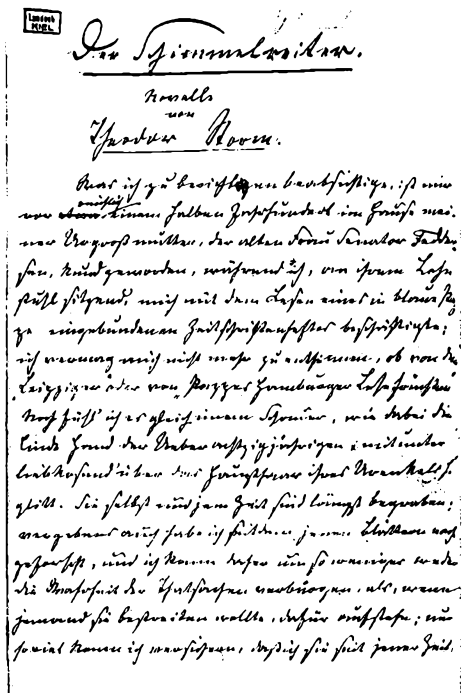 Landesb.
KIEL
Der Schimmelreiter.
Novelle
von
Theodor Storm.
Was ich zu berichten beabsichtige, ist mir
vor reichlich einem halben Jahrhundert im Hause mei-
ner Urgroßmutter, der alten Frau Senator Fedder-
sen, kund geworden, während ich, an ihrem Lehn-
stuhl sitzend, mich mit dem Lesen eines in blaue Pap-
pe eingebundenen Zeitschriftenheftes beschäftigte;
ich vermag mich nicht mehr zu entsinnen, ob von den
„Leipziger" oder von „Pappes Hamburger Lesefrüchten".
Noch fühl' ich es gleich einem Schauer, wie dabei die
linde Hand der Ueberachtzigjährigen mitunter
liebkosend über das Haupthaar ihres Urenkels h.
glitt. Sie selbst und jene Zeit sind längst begraben;
vergebens auch habe ich seitdem jenen Blättern nach
geforscht, und ich kann daher um so weniger weder
die Wahrheit der Thatsachen verbürgen, als, wenn
jemand sie bestreiten wollte, dafür aufstehen; nur
so viel kann ich versichern, daß ich sie seit jener Zeit,